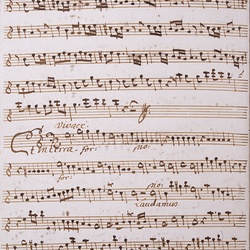 Vivace
Et in terra. for: no.
for: no:
Laudamus